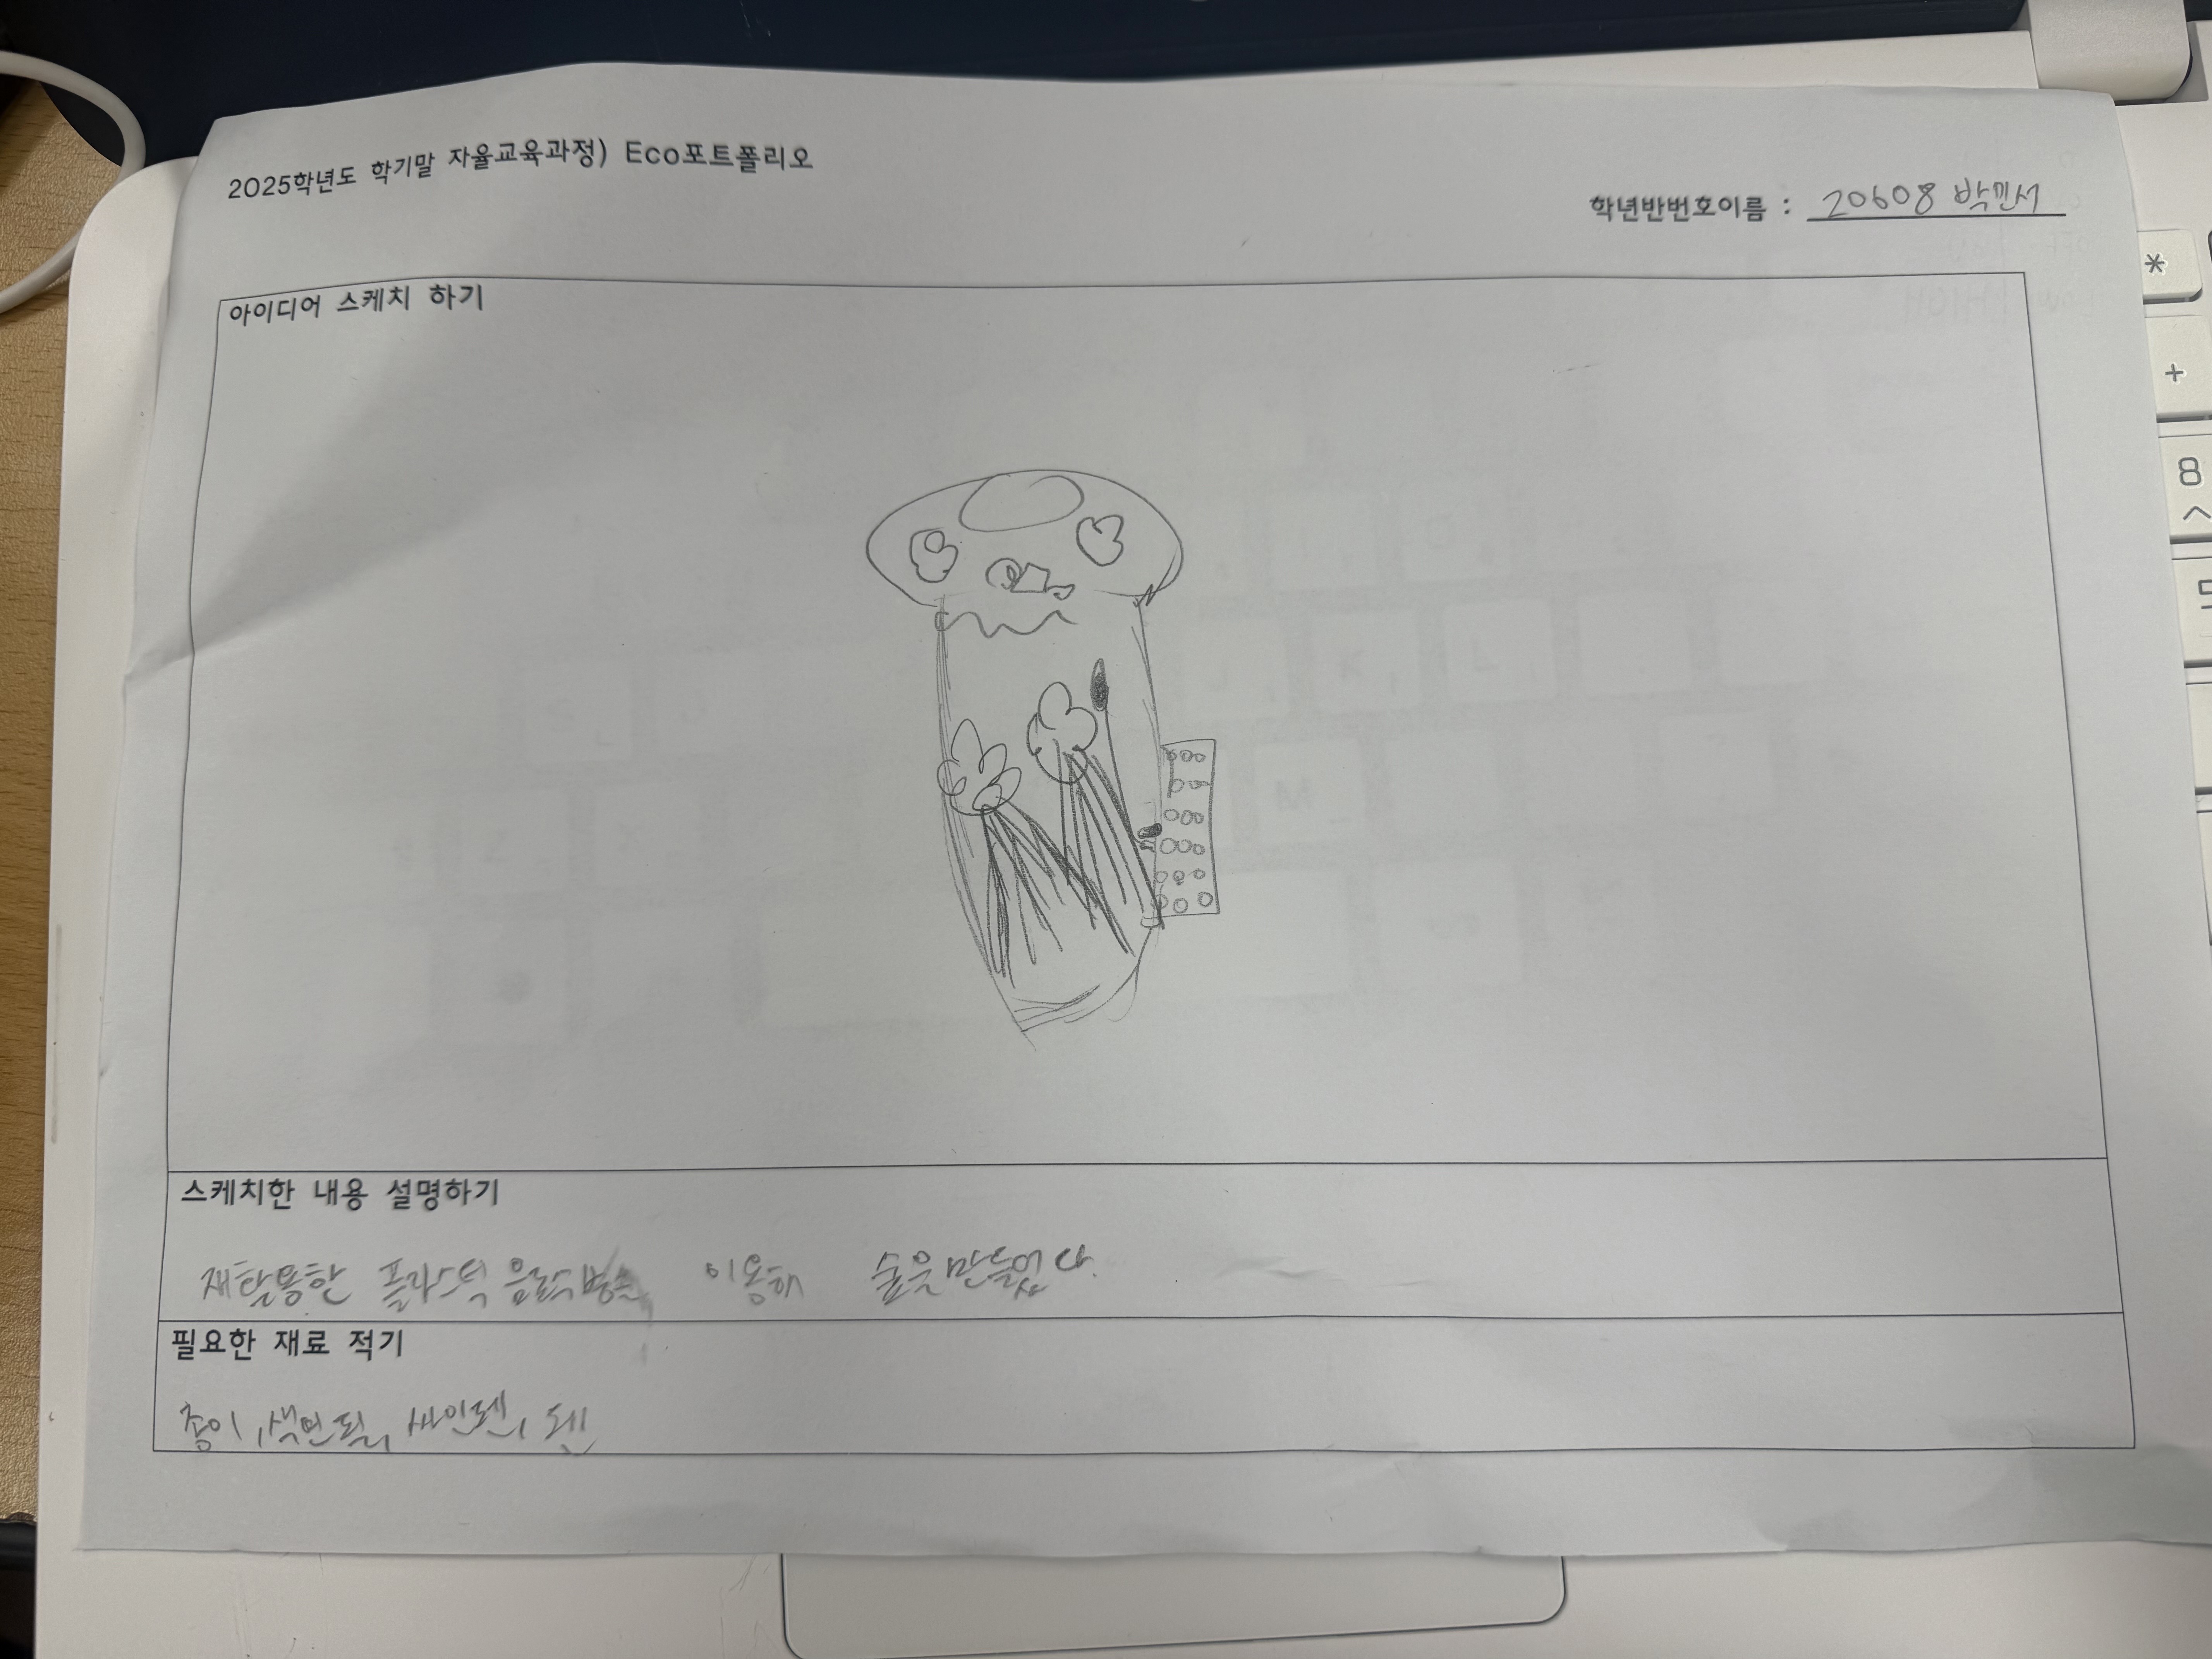 2025학년도 학기말 자율교육과정) Eco포트폴리오
학년반번호이름 : 20608 박민서
아이디어 스케치 하기
스케치한 내용 설명하기
재활용한 플라스틱 음료수병을 이용해 숲을 만들었다.
필요한 재료 적기
종이, 색연필, 싸인펜, 펜
*
+
8